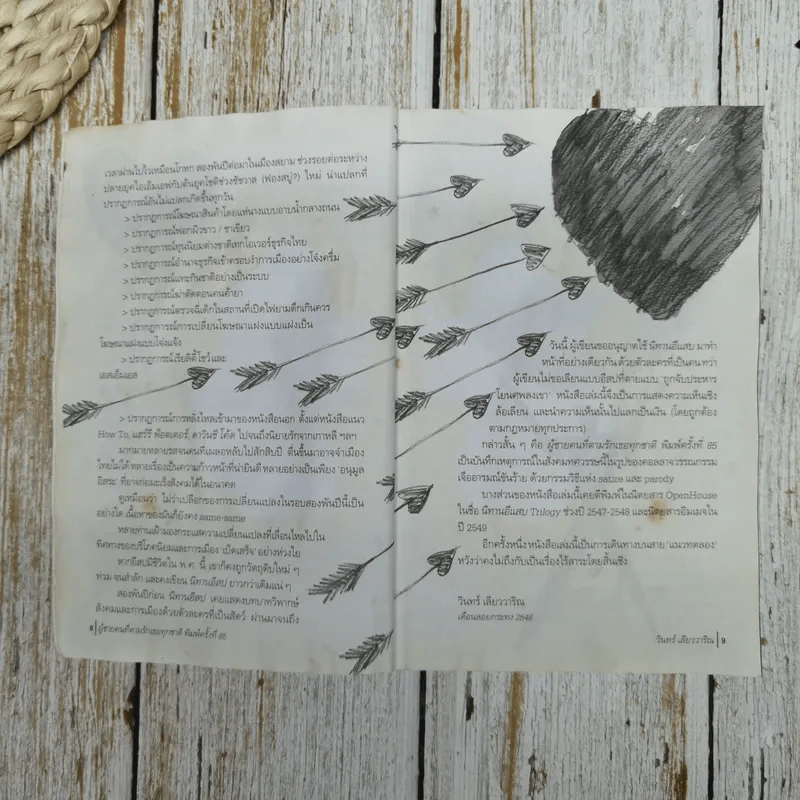 เวลาผ่านไปไวเหมือนโกหก สองพันปีต่อมาในเมืองสยาม ช่วงรอยต่อระหว่าง
ปลายยุคไอเอ็มเอฟกับต้นยุคโชติช่วงชัชวาล (ฟองสบู่?) ใหม่ นำแปลกที่
ปรากฏการณ์อันไม่แปลกเกิดขึ้นทุกวัน
> ปรากฏการณ์โฆษณาสินค้าโดยแห่นางแบบอาบน้ำกลางถนน
> ปรากฏการณ์ฟอกผิวขาว / ชาเขียว
> ปรากฏการณ์ทุนนิยมต่างชาติเทกโอเวอร์ธุรกิจไทย
> ปรากฏการณ์อำนาจธุรกิจเข้าครอบงำการเมืองอย่างโจ๋งครึ่ม
> ปรากฏการณ์แทะกินชาติอย่างเป็นระบบ
> ปรากฏการณ์ฆ่าตัดตอนคนค้ายา
> ปรากฏการณ์ตรวจฉี่เด็กในสถานที่เปิดไฟยามดึกเกินควร
> ปรากฏการณ์การเปลี่ยนโฆษณาแฝงแบบแฝงเป็น
โฆษณาแฝงแบบโจ่งแจ้ง
> ปรากฏการณ์เรียลิตี้โชว์ และ
เอสเอ็มเอส
> ปรากฏการณ์การหลั่งไหลเข้ามาของหนังสือนอก ตั้งแต่หนังสือแนว
How To, แฮร์รี่ พ็อตเตอร์, ดาวินชี โค้ด ไปจนถึงนิยายรักจากเกาหลี ฯลฯ
มากมายหลายรสจนคนที่เผลอหลับไปสักสิบปี ตื่นขึ้นมาอาจจำเมือง
ไทยไม่ได้ หลายเรื่องเป็นความก้าวหน้าที่น่ายินดี หลายอย่างเป็นเพียง 'อนุมูล
อิสระ' ที่อาจก่อมะเร็งสังคมได้ในอนาคต
ดูเหมือนว่า ไม่ว่าเปลือกของการเปลี่ยนแปลงในรอบสองพันปีนี้เป็น
อย่างใด เนื้อหาของมันก็ยังคง same-same
หลายท่านเฝ้ามองกระแสความเปลี่ยนแปลงที่เลื่อนไหลไปใน
ทิศทางของบริโภคนิยมและการเมือง 'เบ็ดเสร็จ' อย่างห่วงใย
หากอีสปมีชีวิตใน พ.ศ. นี้ เขาก็คงถูกวัตถุดิบใหม่ ๆ
ท่วม จนสำลัก และคงเขียน นิทานอีสป ยาวกว่าเดิมแน่ ๆ
สองพันปีก่อน นิทานอีสป เคยแสดงบทบาทวิพากษ์
สังคมและการเมืองด้วยตัวละครที่เป็นสัตว์ ผ่านมาจนถึง
8 | ผู้ชายคนที่ตามรักเธอทุกชาติ พิมพ์ครั้งที่ 85
วันนี้ ผู้เขียนขออนุญาตใช้ นิทานอีแสบ มาทำ
หน้าที่อย่างเดียวกัน ด้วยตัวละครที่เป็นคน ทว่า
ผู้เขียนไม่ขอเลียนแบบอีสปที่ตายแบบ 'ถูกจับประหาร
โยนศพลงเขา' หนังสือเล่มนี้จึงเป็นการแสดงความเห็นเชิง
ล้อเลียน และนำความเห็นนั้นไปแลกเป็นเงิน (โดยถูกต้อง
ตามกฎหมายทุกประการ)
กล่าวสั้น ๆ คือ ผู้ชายคนที่ตามรักเธอทุกชาติ พิมพ์ครั้งที่ 85
เป็นบันทึกเหตุการณ์ในสังคมทศวรรษนี้ในรูปของคอลลาจวรรณกรรม
เจืออารมณ์ขันร้าย ด้วยกรรมวิธีแห่ง satire และ parody
บางส่วนของหนังสือเล่มนี้เคยตีพิมพ์ในนิตยสาร OpenHouse
ในชื่อ นิทานอีแสบ Trilogy ช่วงปี 2547-2548 และนิตยสารอิมเมจใน
ปี 2549
อีกครั้งหนึ่ง หนังสือเล่มนี้เป็นการเดินทางบนสาย 'แนวทดลอง'
หวังว่าคงไม่ถึงกับเป็นเรื่องไร้สาระโดยสิ้นเชิง
วินทร์ เลียววาริณ
เดือนลอยกระทง 2548
วินทร์ เลียววาริณ | 9